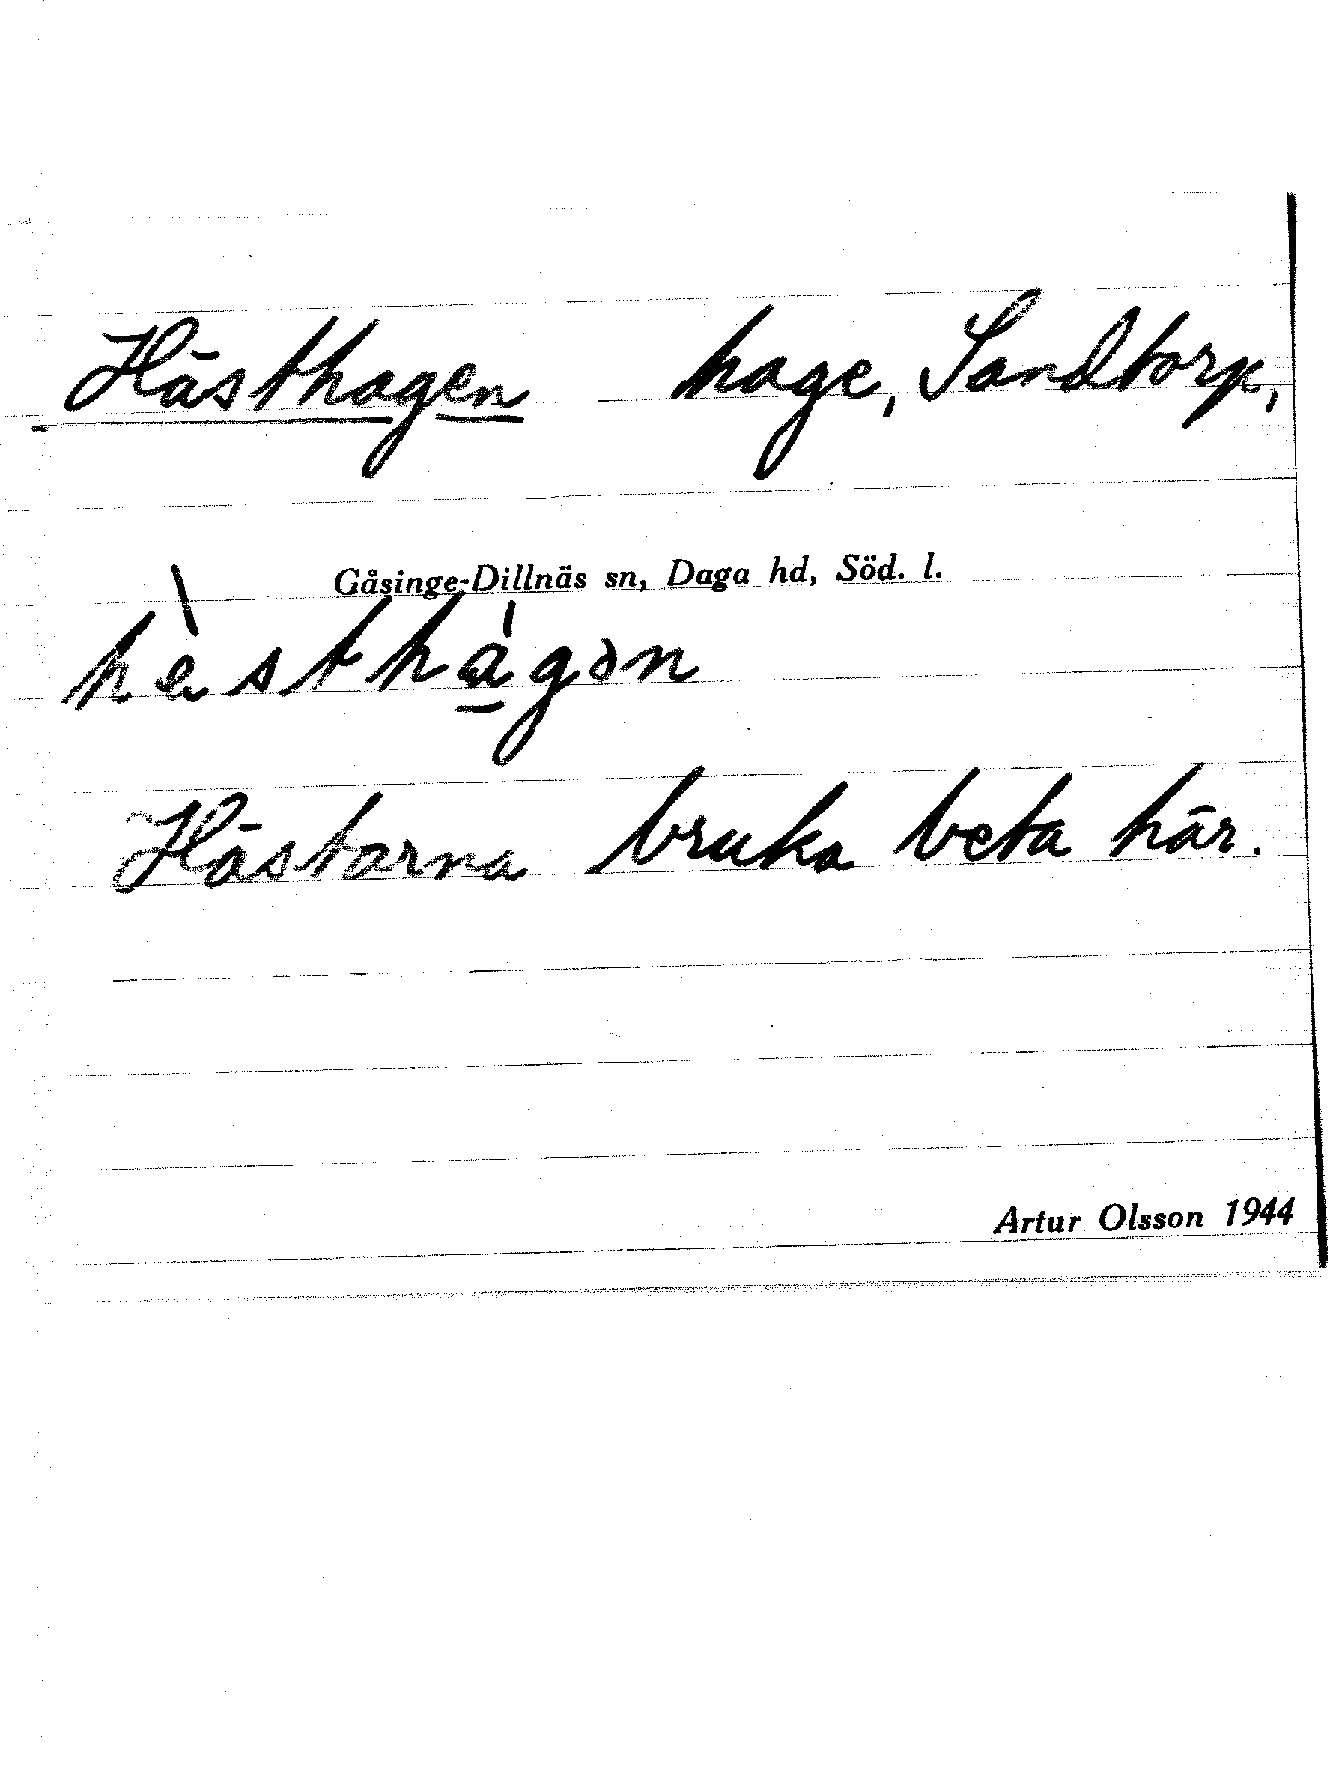 Hästhagen hage, Sandtorp,
Gåsinge-Dillnäs sn, Daga hd, Söd. l.
hὲsthàgən
Hästarna bruka beta här.
Artur Olsson 1944